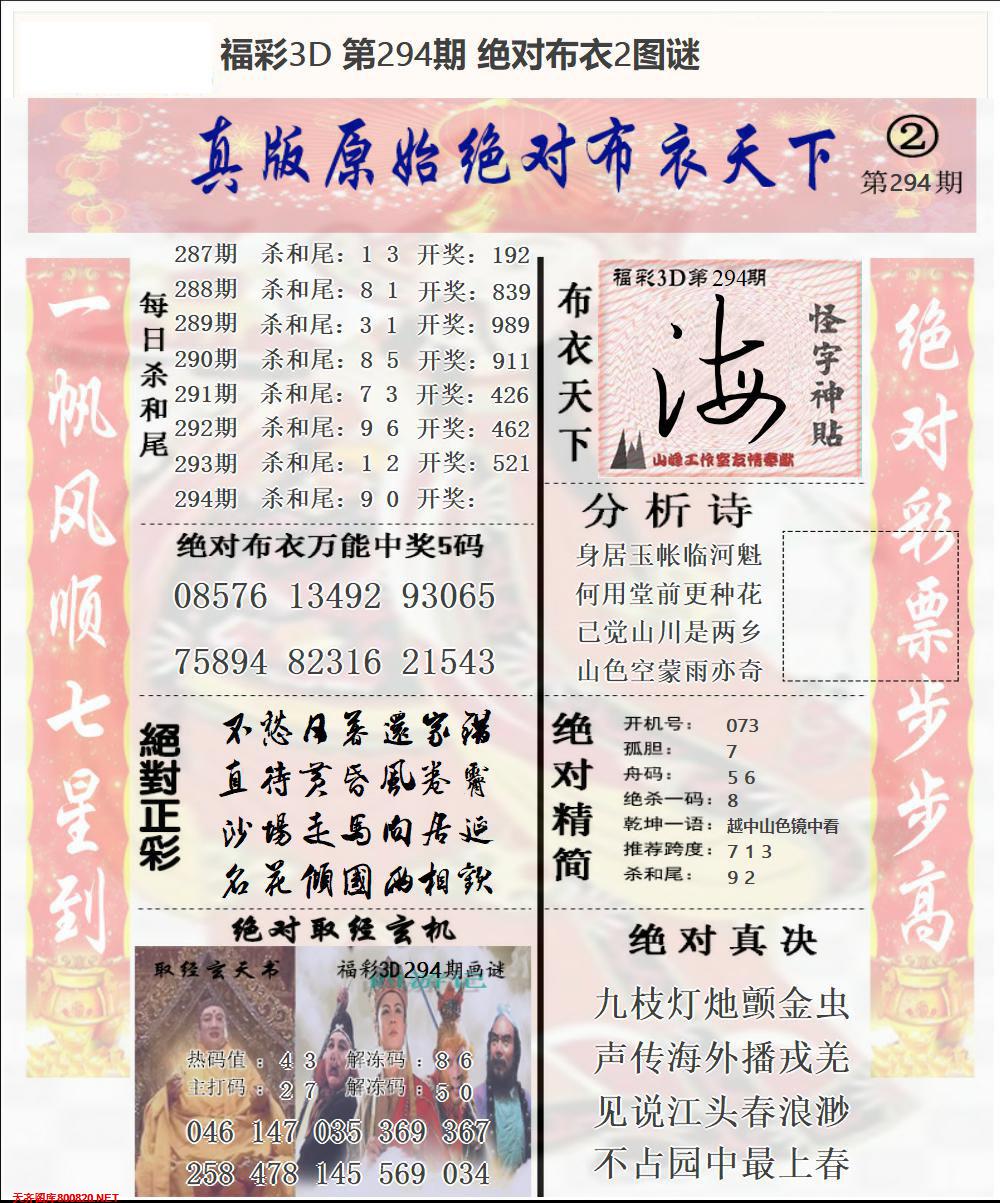 福彩3D 第294期 绝对布衣2图谜
真版原始绝对布衣天下
②
第294期
一帆风顺七星到
每日杀和尾
287期 杀和尾：1 3 开奖：192
288期 杀和尾：8 1 开奖：839
289期 杀和尾：3 1 开奖：989
290期 杀和尾：8 5 开奖：911
291期 杀和尾：7 3 开奖：426
292期 杀和尾：9 6 开奖：462
293期 杀和尾：1 2 开奖：521
294期 杀和尾：9 0 开奖：
绝对布衣万能中奖5码
08576 13492 93065
75894 82316 21543
絕對正彩
不愁日暮還家錯
直待黄昏風卷霽
沙場走馬向居延
名花傾國两相歡
绝对取经玄机
取经玄天书
福彩3D294期画谜
热码值：4 3 解冻码：8 6
主打码：2 7 解冻码：5 0
046 147 035 369 367
258 478 145 569 034
布衣天下
福彩3D第294期
海
怪字神貼
山峰工作室友情奉献
分析诗
身居玉帐临河魁
何用堂前更种花
已觉山川是两乡
山色空蒙雨亦奇
绝对精简
开机号： 073
孤胆： 7
舟码： 5 6
绝杀一码：8
乾坤一语：越中山色镜中看
推荐跨度：7 1 3
杀和尾： 9 2
绝对真决
九枝灯灺颤金虫
声传海外播戎羌
见说江头春浪渺
不占园中最上春
绝对彩票步步高
天齐图库800820.NET